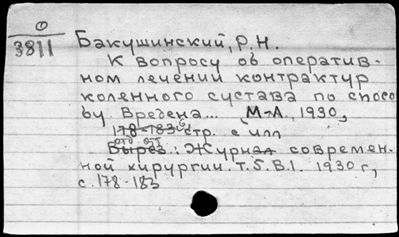 О
3811
Бакушинский, Р.Н.
К вопросу об оператив-
ном лечении контрактур
коленного сустава по спосо
бу Вредена... М-Л., 1930,
178-183 стр. с илл
отд. отт
Вырез.: Журнал современ-
ной хирургии. т.5. В.1. 1930 г,
с. 178-183